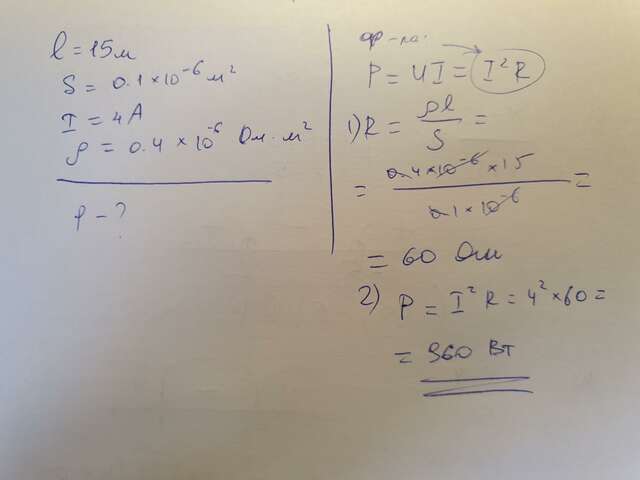 l = 15м
S = 0.1 × 10⁻⁶ м²
I = 4А
ρ = 0.4 × 10⁻⁶ Ом · м²
P - ?
ф-ла:
P = UI = I²R
1) R = ρl / S =
= 0.4 × 10⁻⁶ × 15 / 0.1 × 10⁻⁶ =
= 60 Ом
2) P = I²R = 4² × 60 =
= 960 Вт